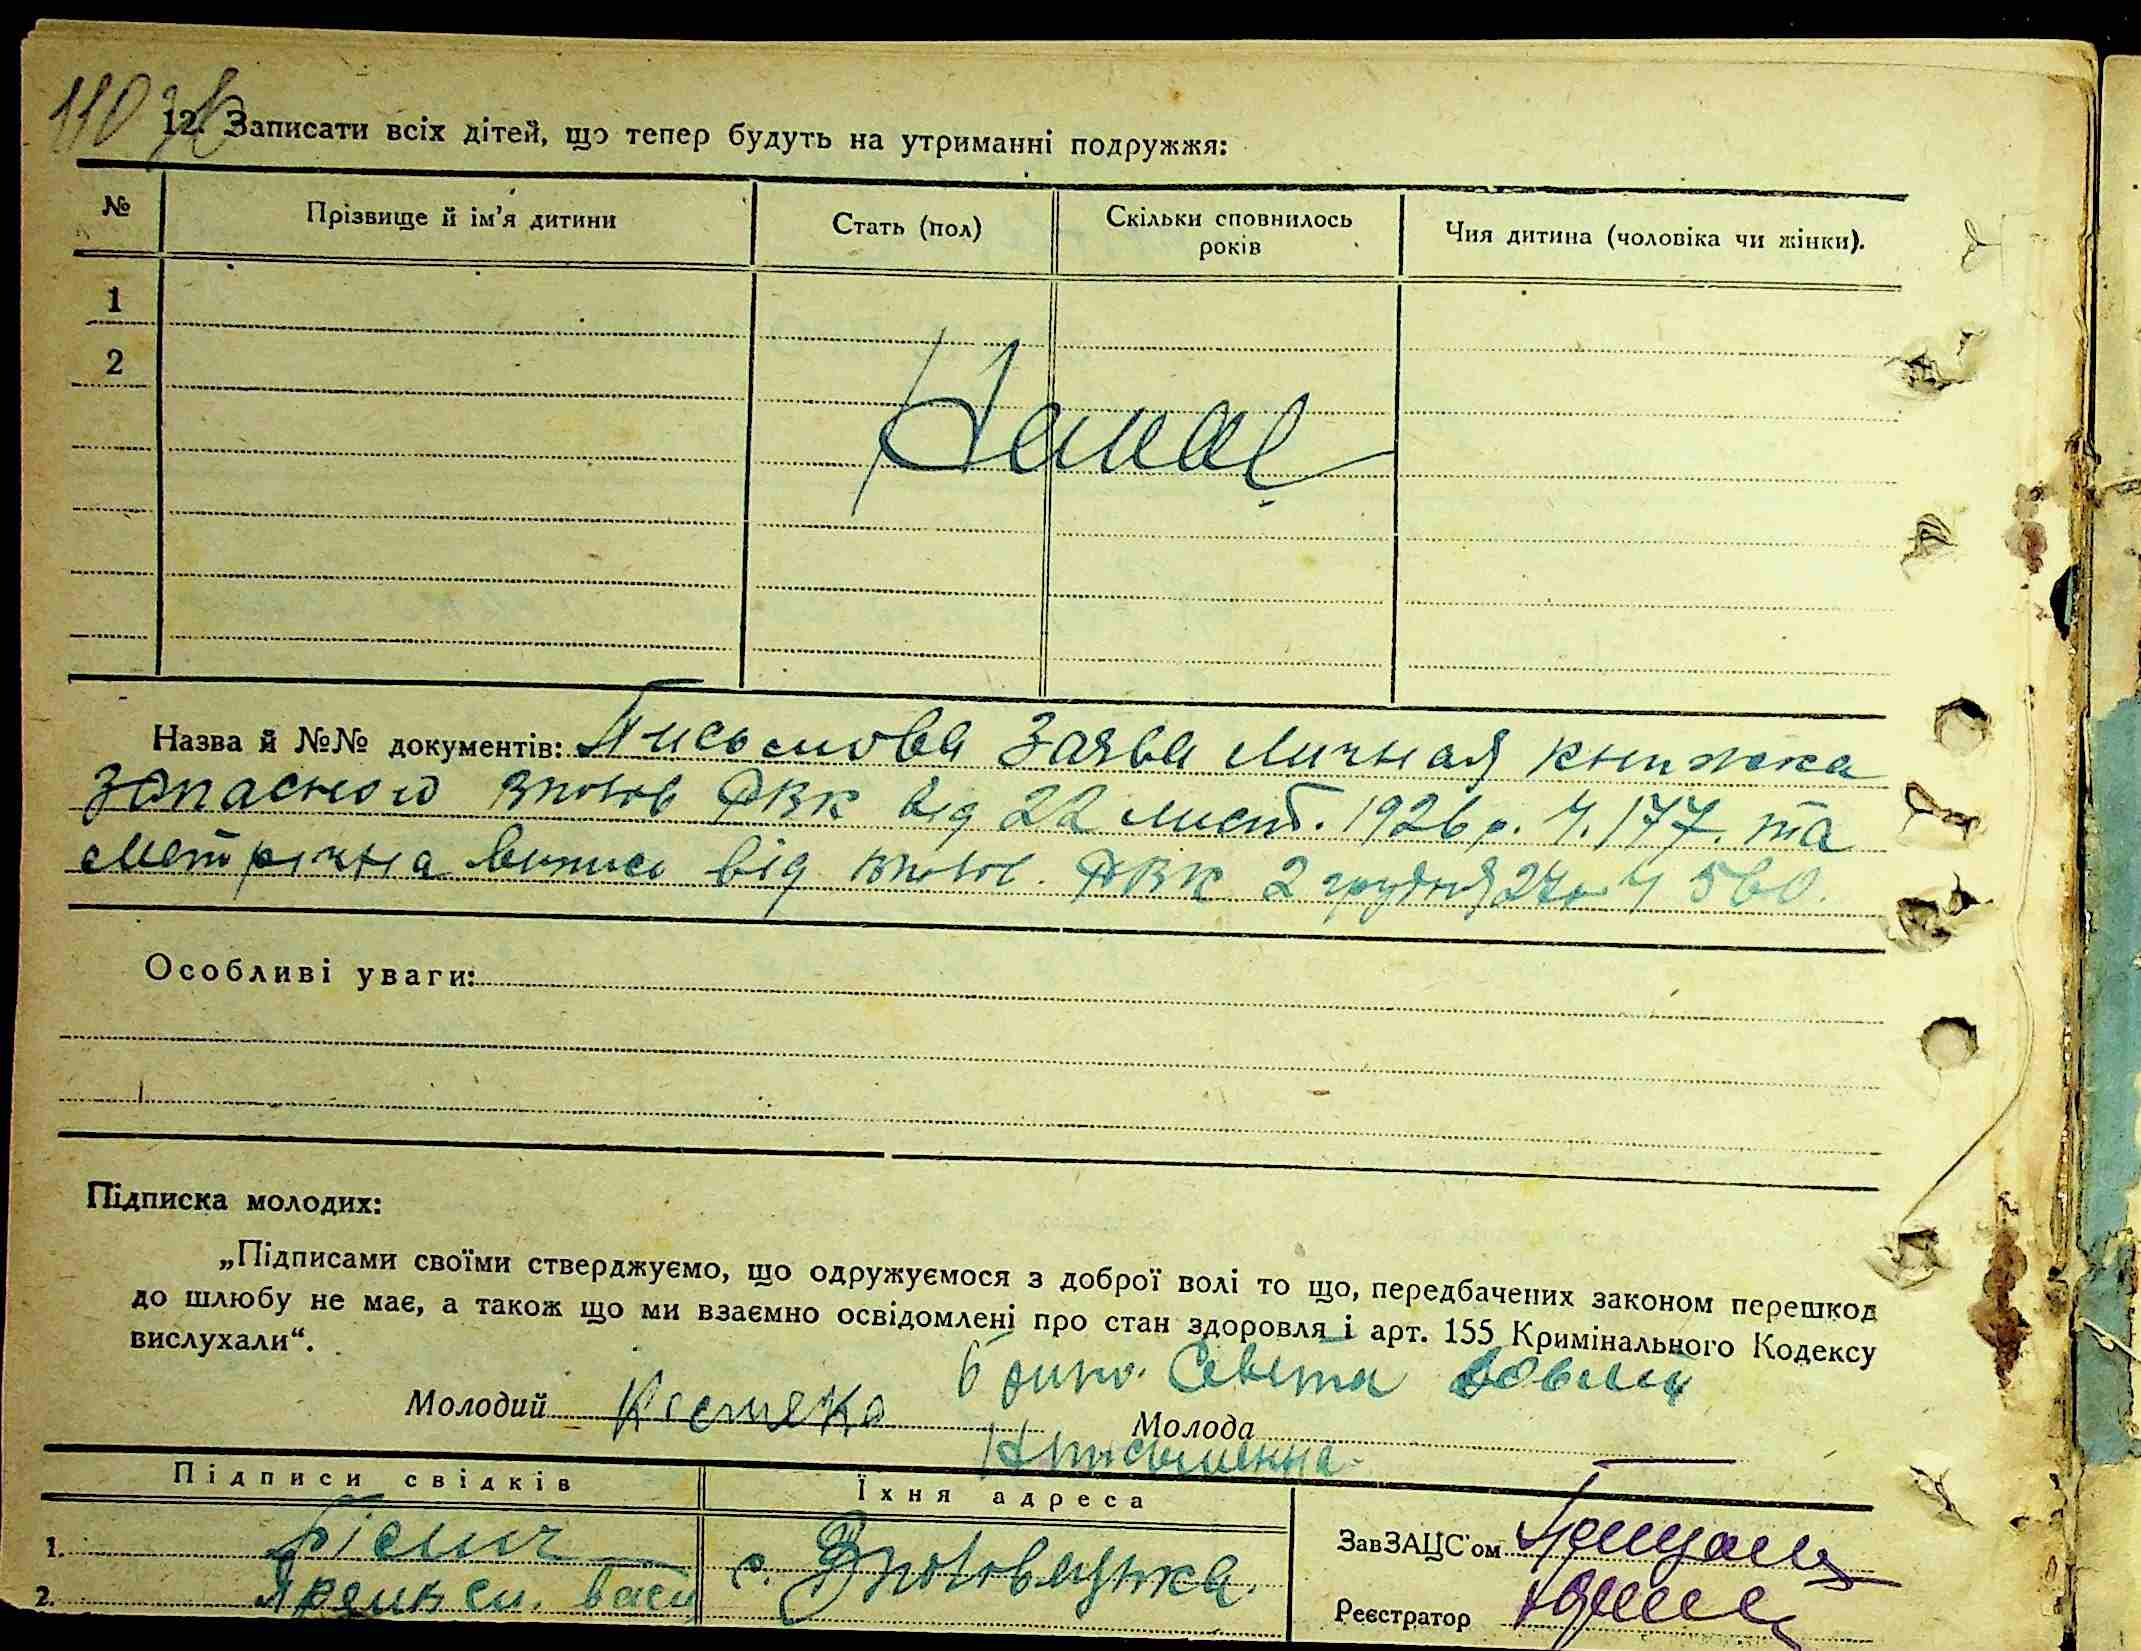 110 зв
12. Записати всіх дітей, що тепер будуть на утриманні подружжя:
№ Прізвище й ім’я дитини Стать (пол) Скільки сповнилось років Чия дитина (чоловіка чи жінки).
1
2
Немає
Назва й №№ документів: Письмова заява Личная книжка
запасного РВК від 22 лист. 1926 р. Ч. 177. та
метрична випись від РВК 2 грудня 27 р Ч 560.
Особливі уваги:
Підписка молодих:
„Підписами своїми стверджуємо, що одружуємося з доброї волі то що, передбачених законом перешкод
до шлюбу не має, а також що ми взаємно освідомлені про стан здоровля і арт. 155 Кримінального Кодексу
вислухали“.
Молодий Молода
Підписи свідків Їхня адреса
1. с. ЗавЗАЦС’ом
2. Реєстратор